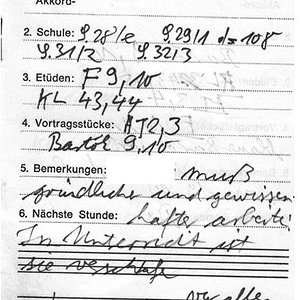 Akkord-
2. Schule: S. 28/e S. 29/1 d=108
S. 31/2 S. 32/3
3. Etüden: F 9, 10
KL 43, 44
4. Vortragsstücke: AT 2, 3
Bartók 9, 10
5. Bemerkungen: muß
gründlicher und gewissen-
6. Nächste Stunde: hafter arbeiten
Im Unterricht ist
sie verschlafe
vor allem